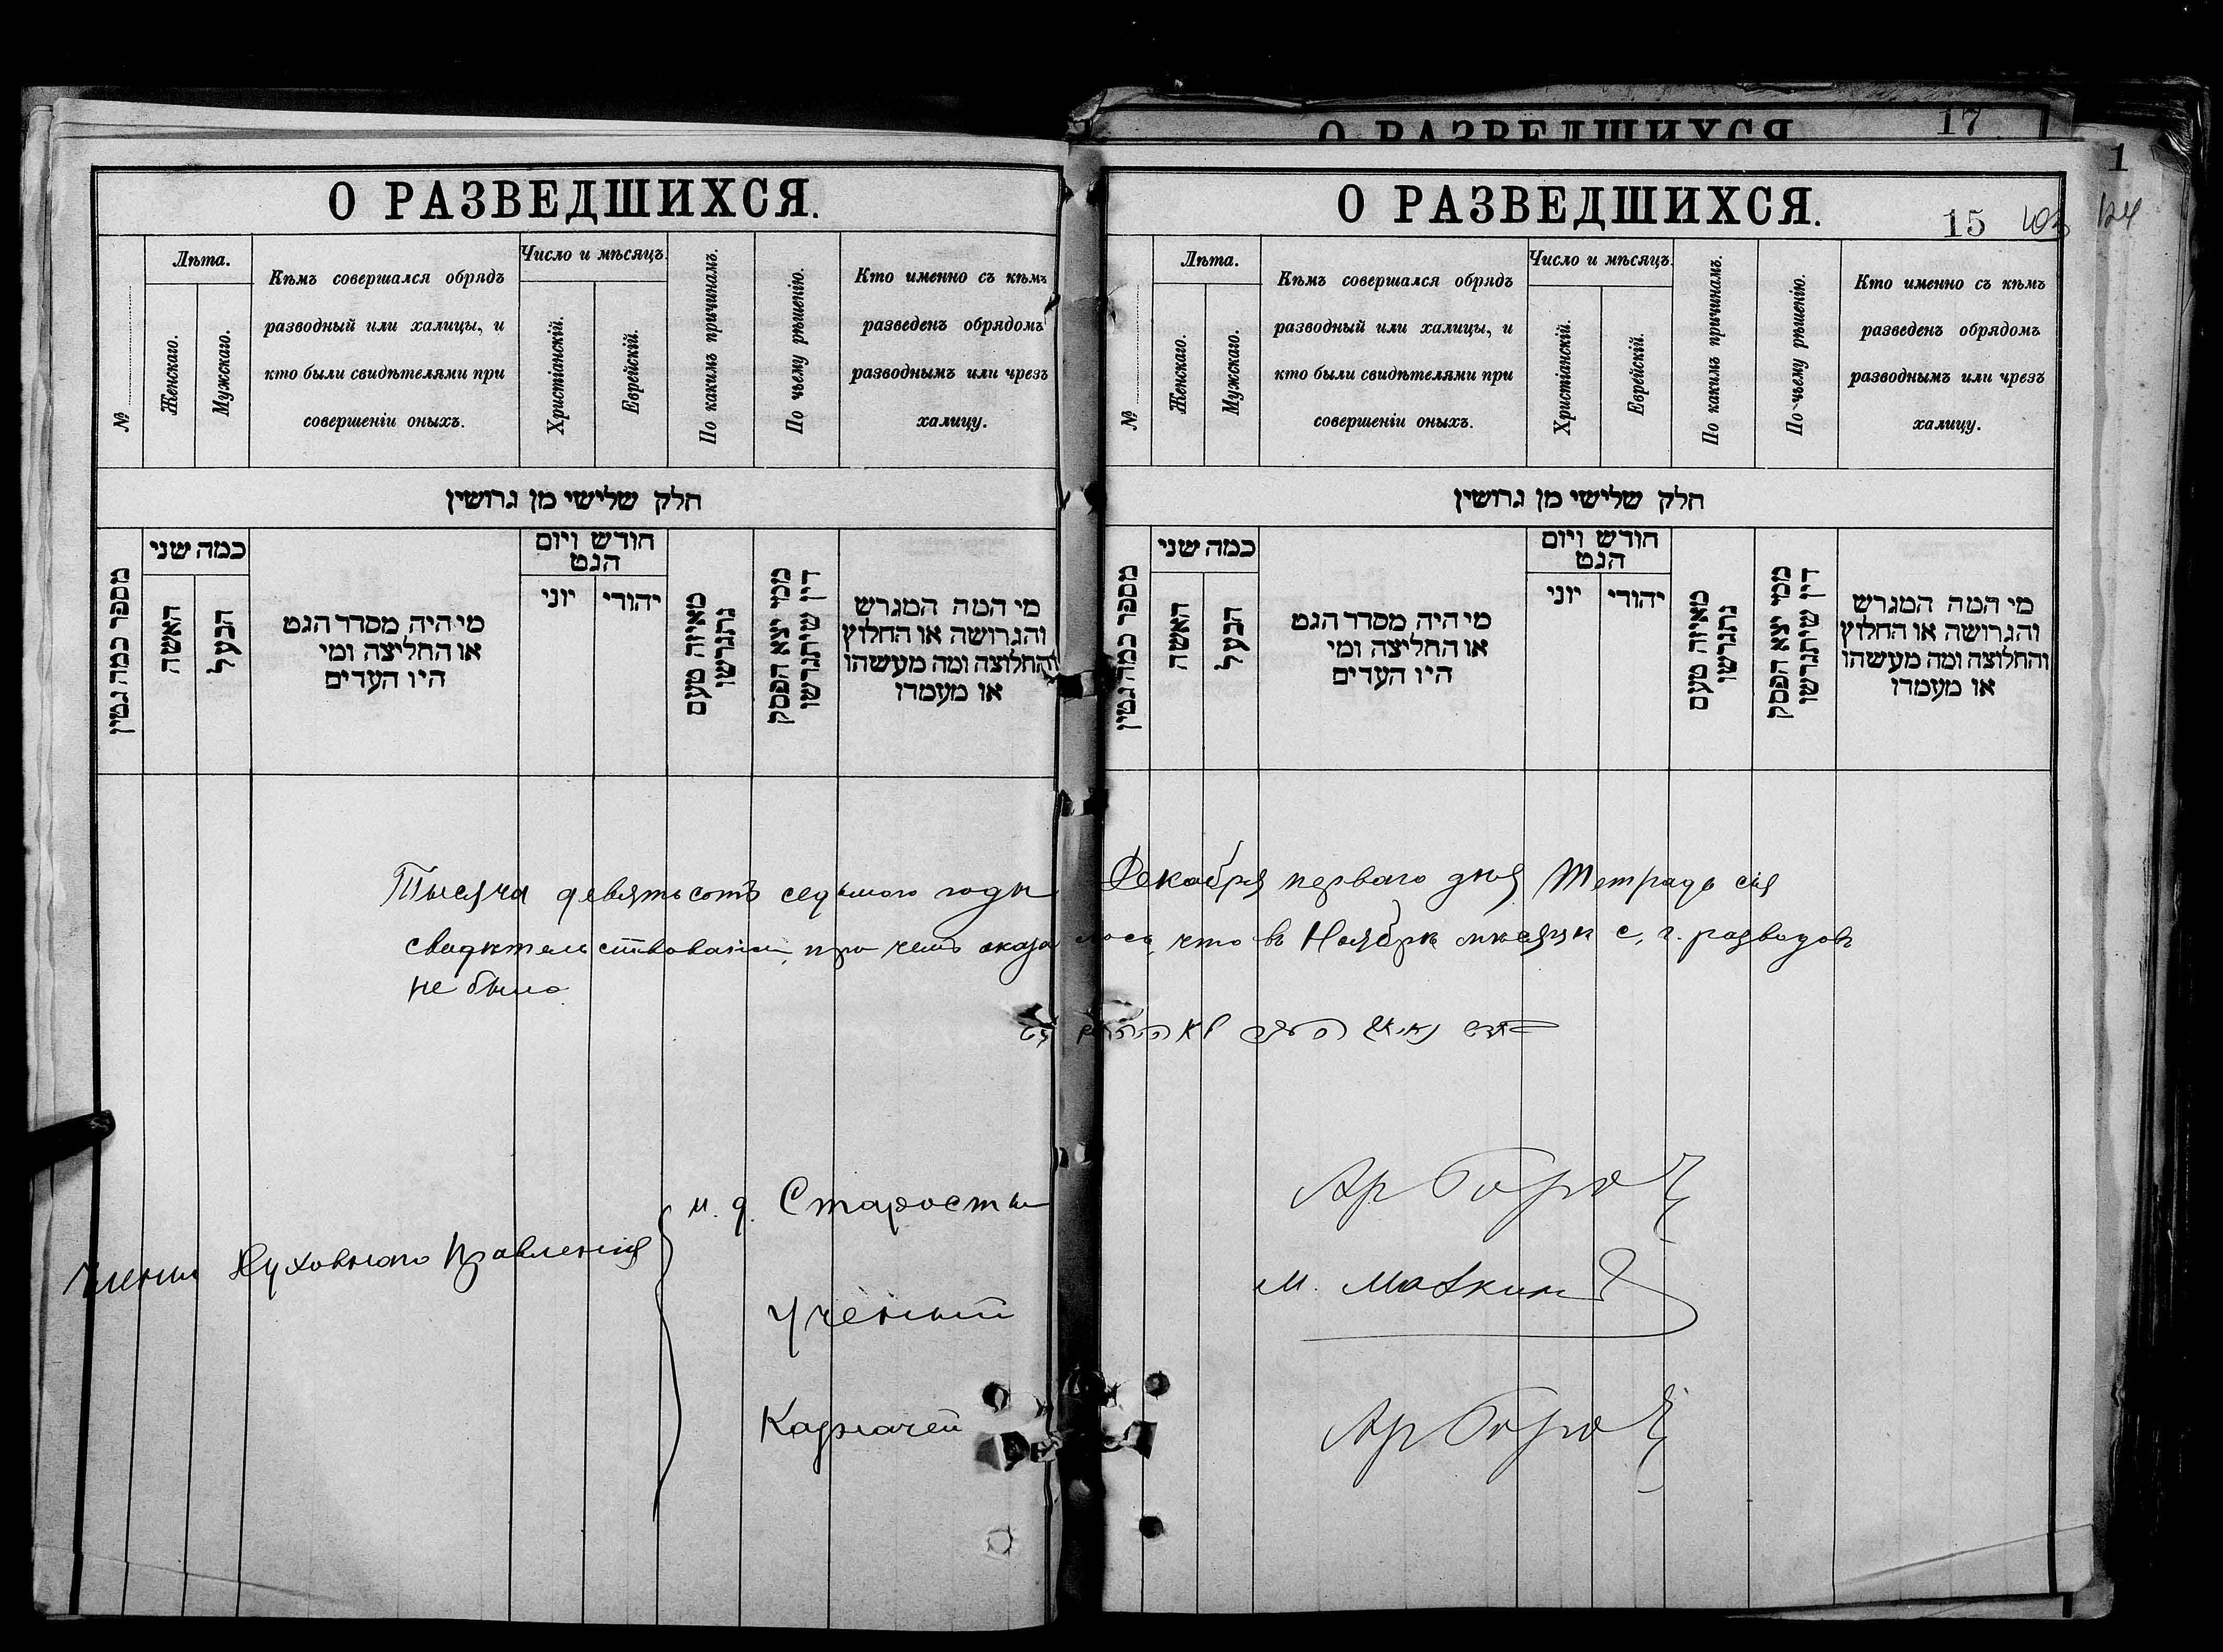 О РАЗВЕДШИХСЯ.
№
Лѣта.
Женскаго.
Мужскаго.
Кѣмъ совершался обрядъ
разводный или халицы, и
кто были свидѣтелями при
совершеніи оныхъ.
Число и мѣсяцъ.
Христіанскій.
Еврейскій.
По какимъ причинамъ.
По чьему рѣшенію.
Кто именно съ кѣмъ
разведенъ обрядомъ
разводнымъ или чрезъ
халицу.
חלק שלישי מן גרושין
מספר כמה גטין
כמה שני
האשה
הבעל
מי היה מסדר הגט
או החליצה ומי
היו העדים
חודש ויום
הגט
יוני
יהודי
מאיזה טעם
נתגרשו
ממי יצא הפסק
דין שיתגרשו
מי המה המגרש
והגרושה או החלוץ
והחלוצה ומה מעשהו
או מעמדו
17
О РАЗВЕДШИХСЯ
1
О РАЗВЕДШИХСЯ.
15
№
Лѣта.
Женскаго.
Мужскаго.
Кѣмъ совершался обрядъ
разводный или халицы, и
кто были свидѣтелями при
совершеніи оныхъ.
Число и мѣсяцъ.
Христіанскій.
Еврейскій.
По какимъ причинамъ.
По чьему рѣшенію.
Кто именно съ кѣмъ
разведенъ обрядомъ
разводнымъ или чрезъ
халицу.
חלק שלישי מן גרושין
מספר כמה גטין
כמה שני
האשה
הבעל
מי היה מסדר הגט
או החליצה ומי
היו העדים
חודש ויום
הגט
יוני
יהודי
מאיזה טעם
נתגרשו
ממי יצא הפסק
דין שיתגרשו
מי המה המגרש
והגרושה או החלוץ
והחלוצה ומה מעשהו
או מעמדו
Тысяча девятьсотъ седьмого года Декабря перваго дня Тетрадь сія
свидѣтельствована, при чемъ оказалось, что въ Ноябрѣ мѣсяцѣ с. г. разводовъ
не было.
Члены Духовнаго Правленія
и. д. Старосты
Ученый
М. Маткин
Казначей